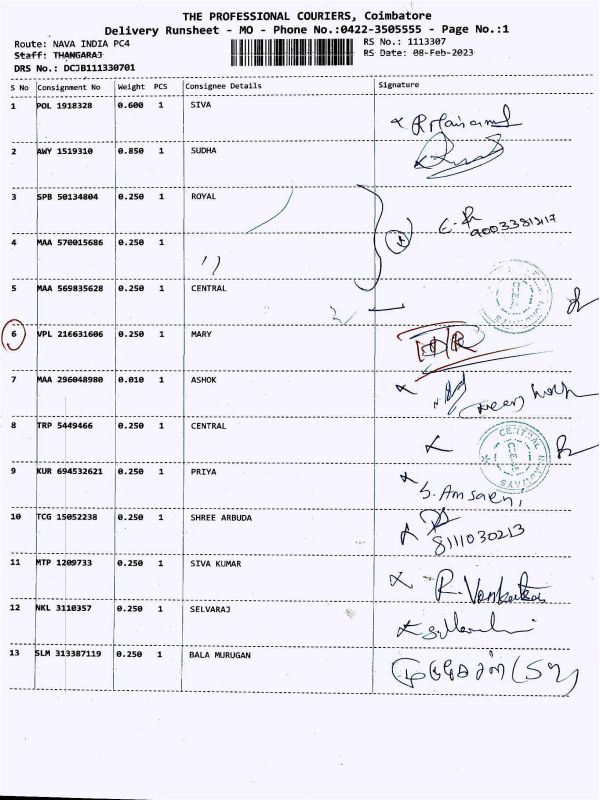 THE PROFESSIONAL COURIERS, Coimbatore
Delivery Runsheet - MO - Phone No.:0422-3505555 - Page No.:1
Route: NAVA INDIA PC4
RS No.: 1113307
Staff: THANGARAJ
RS Date: 08-Feb-2023
DRS No.: DCJB111330701
S No Consignment No Weight PCS Consignee Details Signature
1 POL 1918328 0.600 1 SIVA
2 AWY 1519310 0.850 1 SUDHA
3 SPB 50134804 0.250 1 ROYAL
4 MAA 570015686 0.250 1
5 MAA 569835628 0.250 1 CENTRAL
6 VPL 216631606 0.250 1 MARY
7 MAA 296048980 0.010 1 ASHOK
8 TRP 5449466 0.250 1 CENTRAL
CENTRAL
9 KUR 694532621 0.250 1 PRIYA
10 TCG 15052238 0.250 1 SHREE ARBUDA
8111030213
11 MTP 1209733 0.250 1 SIVA KUMAR
12 NKL 3110357 0.250 1 SELVARAJ
13 SLM 313387119 0.250 1 BALA MURUGAN